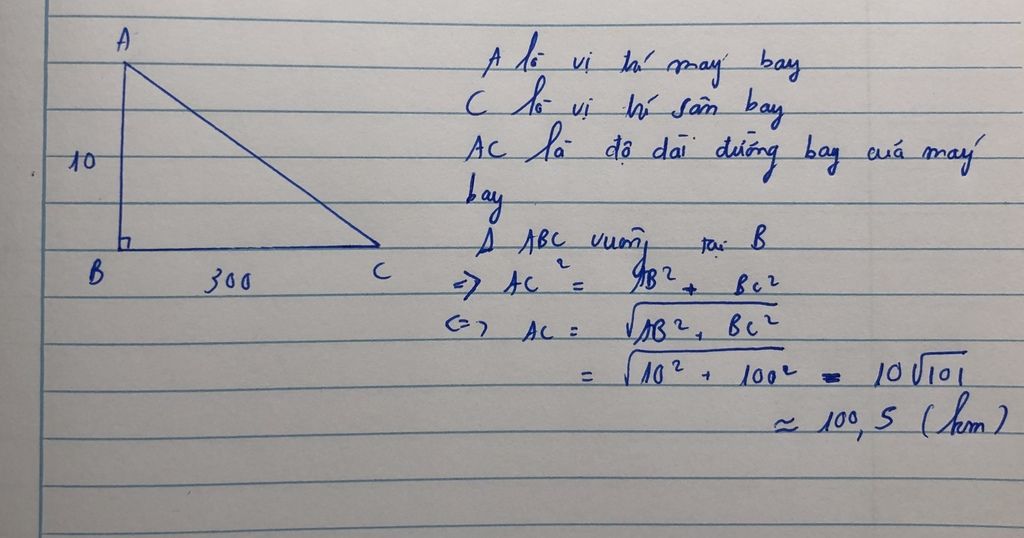 A
10
B
300
C
A là vị trí máy bay
C là vị trí sân bay
AC là độ dài đường bay của máy
bay
Δ ABC vuông tại B
=> AC² = AB² + BC²
<=> AC = √(AB² + BC²)
= √(10² + 100²) = 10√101
≈ 100,5 (km)